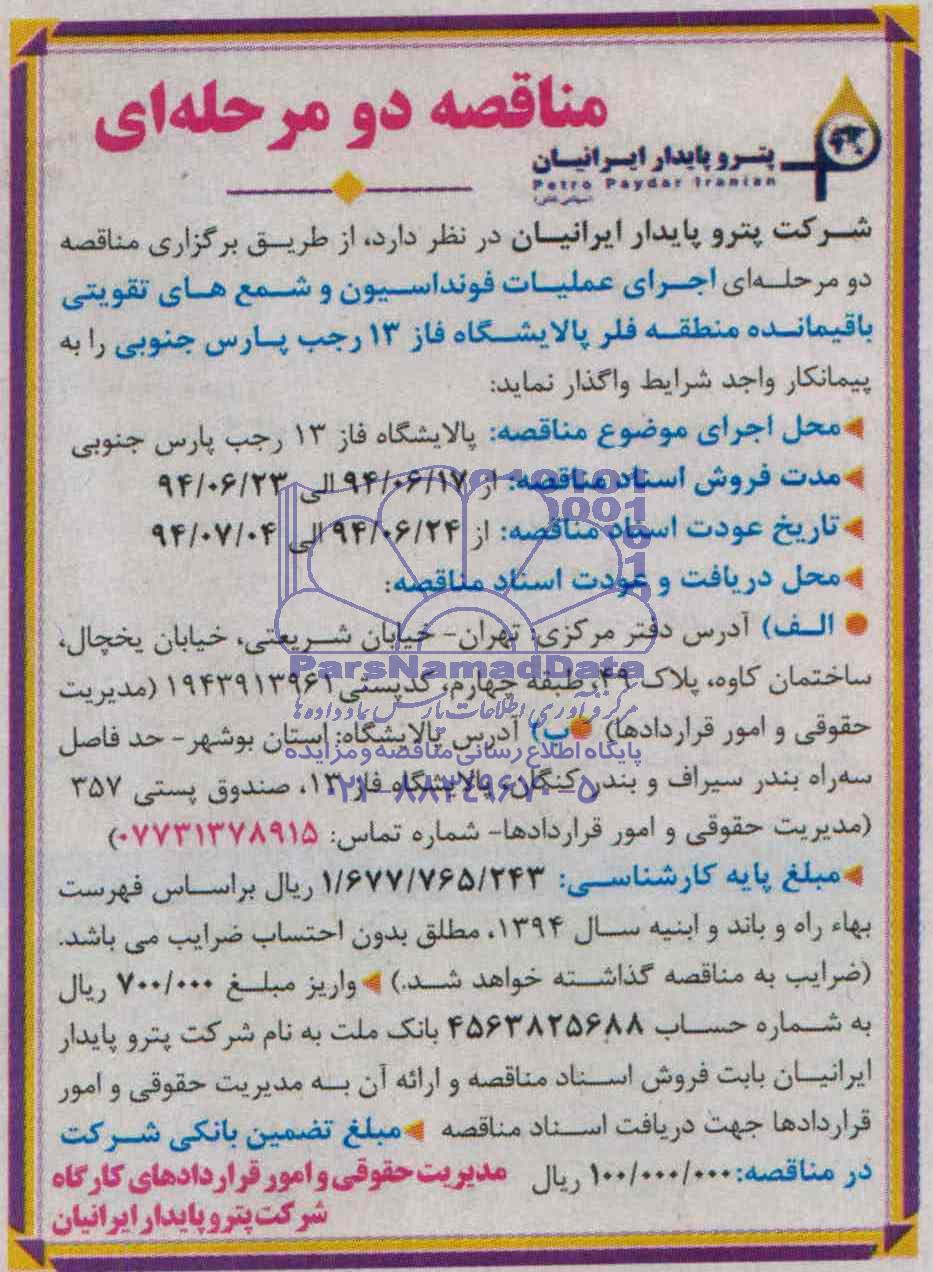 مناقصه دو مرحله‌ای
پترو پایدار ایرانیان
Petro Paydar Iranian
(سهامی خاص)
شرکت پترو پایدار ایرانیان در نظر دارد، از طریق برگزاری مناقصه
دو مرحله‌ای اجرای عملیات فونداسیون و شمع های تقویتی
باقیمانده منطقه فلر پالایشگاه فاز ۱۳ رجب پارس جنوبی را به
پیمانکار واجد شرایط واگذار نماید:
محل اجرای موضوع مناقصه: پالایشگاه فاز ۱۳ رجب پارس جنوبی
مدت فروش اسناد مناقصه: از ۹۴/۰۶/۱۷ الی ۹۴/۰۶/۲۳
تاریخ عودت اسناد مناقصه: از ۹۴/۰۶/۲۴ الی ۹۴/۰۷/۰۴
محل دریافت و عودت اسناد مناقصه:
الف) آدرس دفتر مرکزی: تهران- خیابان شریعتی، خیابان یخچال،
ساختمان کاوه، پلاک ۴۹، طبقه چهارم، کدپستی ۱۹۴۳۹۱۳۹۶۱ (مدیریت
حقوقی و امور قراردادها) ب) آدرس پالایشگاه: استان بوشهر- حد فاصل
سه‌راه بندر سیراف و بندر کنگان، پالایشگاه فاز ۱۳، صندوق پستی ۳۵۷
(مدیریت حقوقی و امور قراردادها- شماره تماس: ۰۷۷۳۱۳۷۸۹۱۵)
مبلغ پایه کارشناسی: ۱/۶۷۷/۷۶۵/۲۴۳ ریال براساس فهرست
بهاء راه و باند و ابنیه سال ۱۳۹۴، مطلق بدون احتساب ضرایب می باشد.
(ضرایب به مناقصه گذاشته خواهد شد.) واریز مبلغ ۷۰۰/۰۰۰ ریال
به شماره حساب ۴۵۶۳۸۲۵۶۸۸ بانک ملت به نام شرکت پترو پایدار
ایرانیان بابت فروش اسناد مناقصه و ارائه آن به مدیریت حقوقی و امور
قراردادها جهت دریافت اسناد مناقصه مبلغ تضمین بانکی شرکت
در مناقصه: ۱۰۰/۰۰۰/۰۰۰ ریال
مدیریت حقوقی و امور قراردادهای کارگاه
شرکت پترو پایدار ایرانیان
ParsNamadData
مرکز فرآوری اطلاعات پارس نماد داده‌ها
پایگاه اطلاع رسانی مناقصه و مزایده